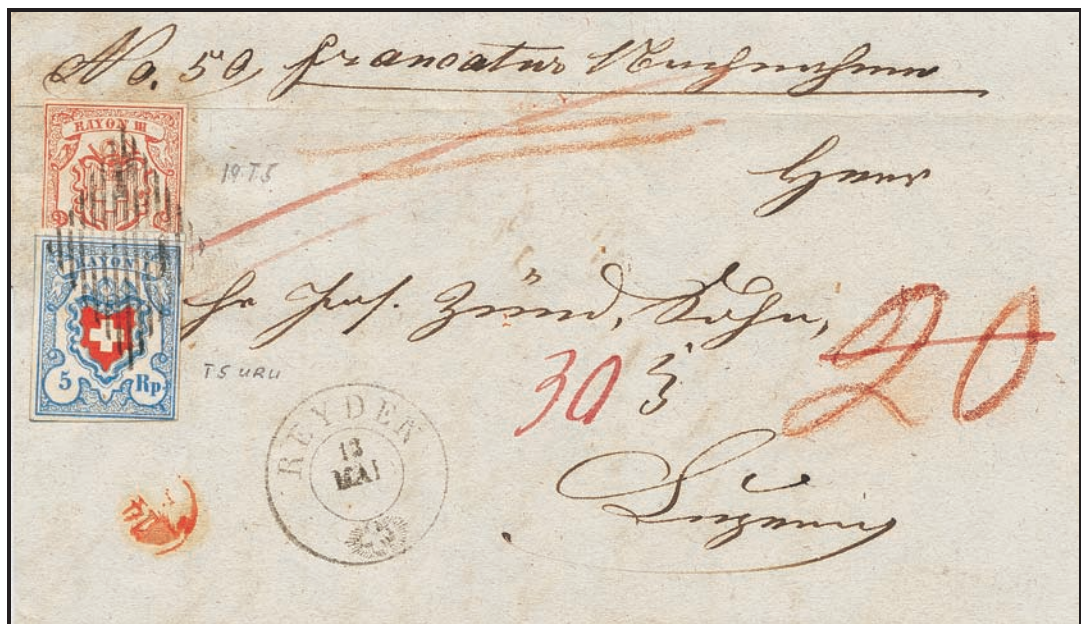 No. 50 francatur Nachnahme
RAYON III
19 T5
Herr
RAYON I
Jos. Zünd, Sohn,
5 Rp
T5 URU
30
20
REYDEN
13
MAI
Luzern